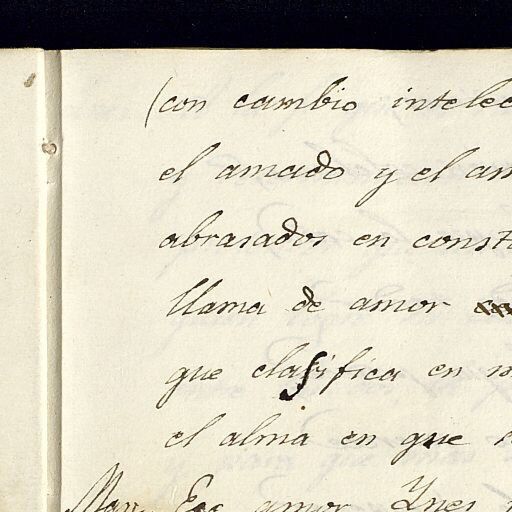 (con cambio intelec
el amado y el am
abrasados en consta
llama de amor
que clasifica en m
el alma en que
Man. Ese amor Ynes